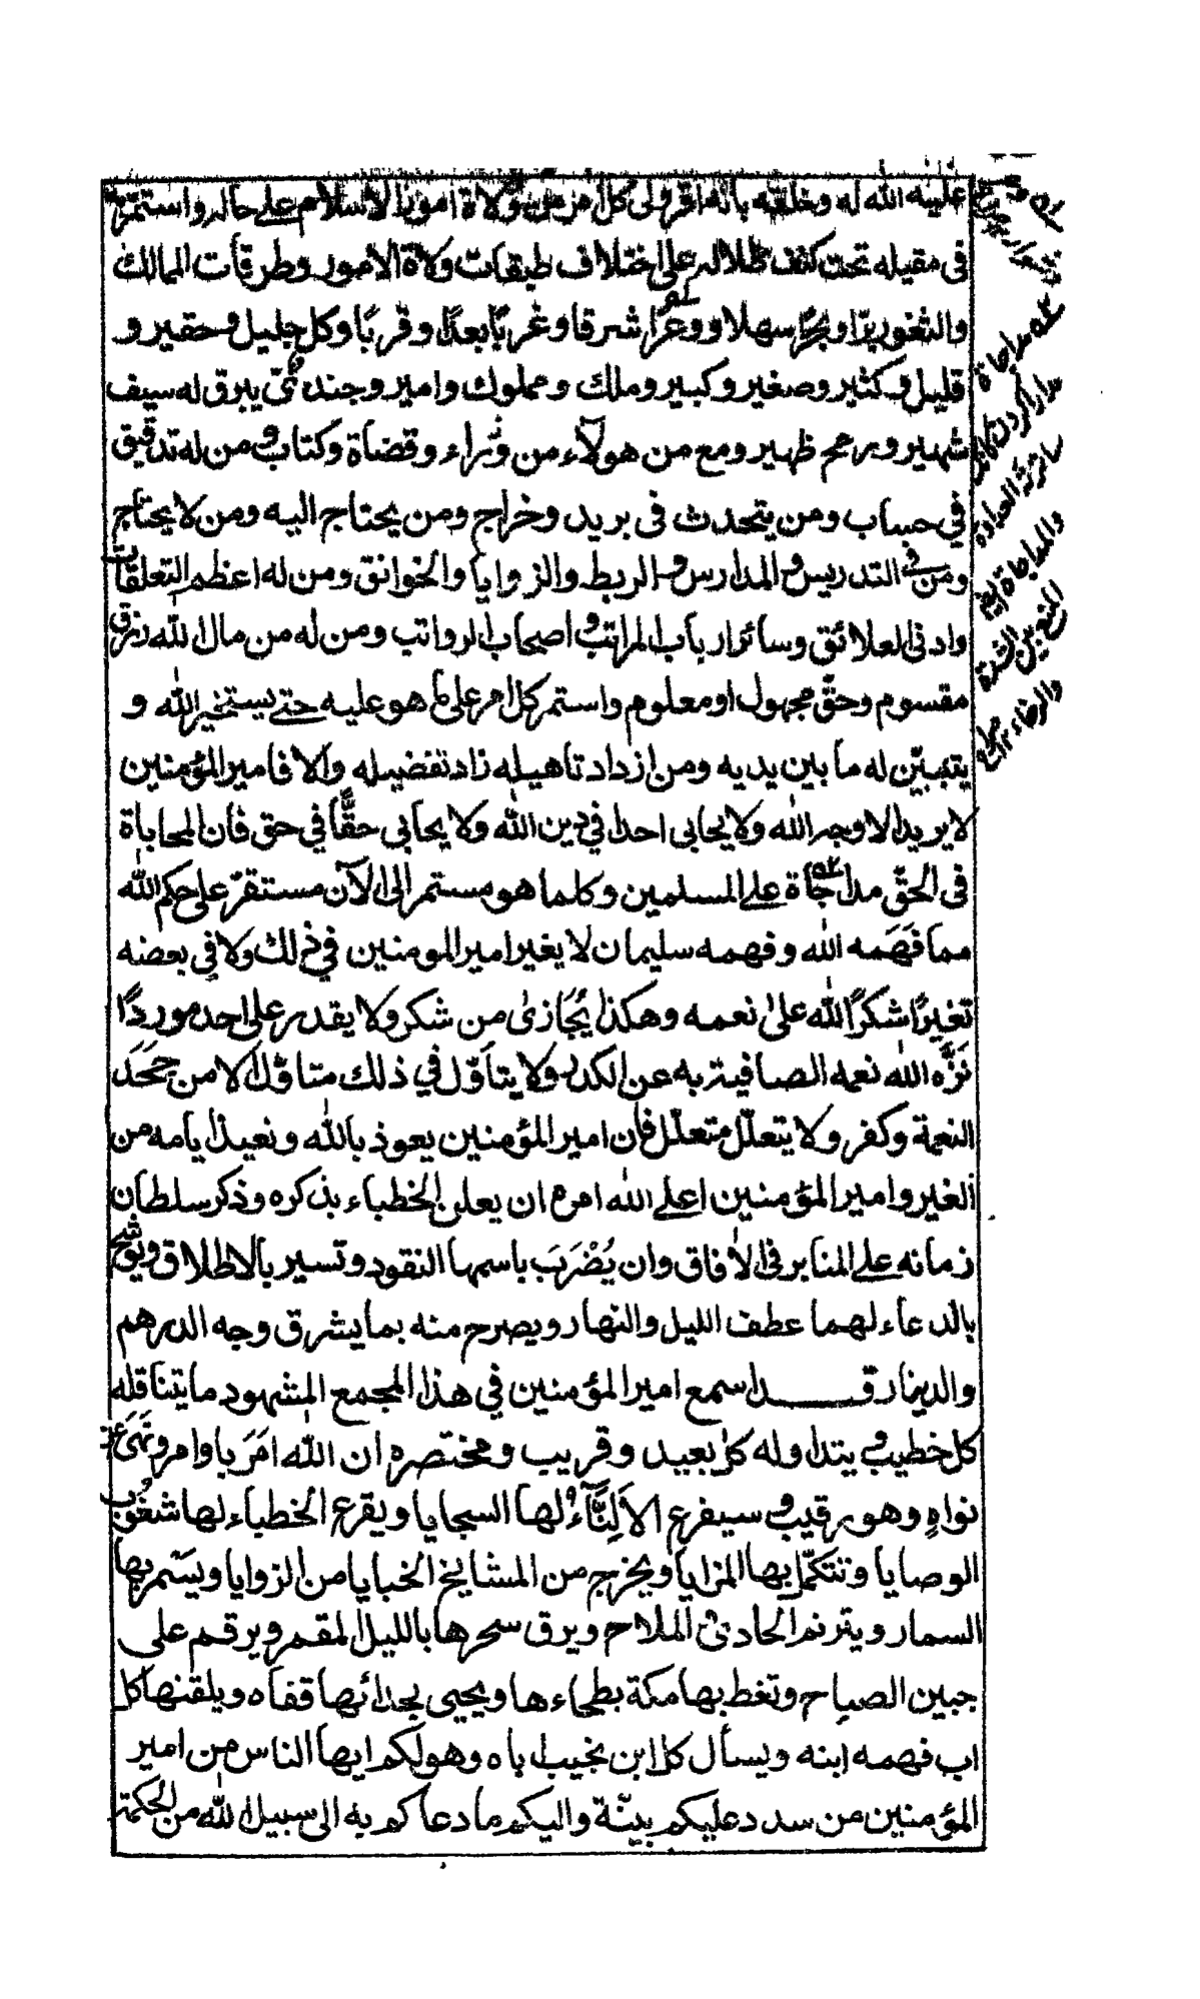 عليه الله له وخلقه بانه اقر ولى كل امر من ولاة امور الاسلام على حاله واستمر به
فى مقيله تحت كنف ظلاله على اختلاف طبقات ولاة الامور وطرقات الممالك
والثغور برّا وبحرًا سهلا ووعرًا شرقا وغربًا بعدًا وقربًا وكل جليل وحقير و
قليل وكثير وصغير وكبير وملك ومملوك وامير وجندىّ يبرق له سيف
شهير ورمح ظهير ومع من هولآء من وزراء وقضاة وكتاب ومن له تدقيق
في حساب ومن يتحدث فى بريد وخراج ومن يحتاج اليه ومن لا يحتاج
ومن فى التدريس والمدارس والربط والزوايا والخوانق ومن له اعظم التعلقات
وادنى العلائق وسائر ارباب المراتب واصحاب الرواتب ومن له من مال الله رزق
مقسوم وحقّ مجهول او معلوم واستمر كل امر على ما هو عليه حتى يستخير الله و
يتبيّن له ما بين يديه ومن ازداد تاهيله زاد تفضيله والا فامير المؤمنين
لا يريد الا وجه الله ولا يحابى احدا في دين الله ولا يحابى حقًّا في حق فان المحاباة
فى الحقّ مداجاة على المسلمين وكلما هو مستمر الى الآن مستقرّ على حكم الله
مما فَهَمه الله وفهمه سليمان لا يغير امير المومنين في ذلك ولا فى بعضه
تغيرًا شكرًا لله على نعمه وهكذا يُجَازىٰ من شكر ولا يقدر على احد موردًا
نَزَّه الله نعمه الصافية به عن الكدر ولا يتأوّل في ذلك متاوّل الا من جَحَدَ
النعمة وكفر ولا يتعلّل متعلّل فان امير المؤمنين يعوذ بالله ونعيذ ايامه من
الغير وامير المؤمنين اعلى الله امره ان يعلن الخطباء بذكره وذكر سلطان
زمانه على المنابر فى الآفاق وان يُضْرَبَ باسمها النقود وتسير بالاطلاق ويوشح
بالدعاء لهما عطف الليل والنهار ويصرح منه بما يشرق وجه الدرهم
والدينار قد اسمع امير المؤمنين في هذا المجمع المشهود ما يتناقله
كل خطيب ويتداوله كل بعيد وقريب ومختصره ان الله امَرَ باوامر ونَهَىَ عن
نواهٍ وهو رقيب وسيفرع الاَلِبَّآءُ لها السجايا ويقرع الخطباء لها شعُوُب
الوصايا وتتكمّل بها المزايا ويخرج من المشايخ الخبايا من الزوايا ويسَمر بها
السمار ويترنم الحادى والملاح ويرق سحرها بالليل المقمر ويرقم على
جبين الصباح وتغط بها مكة بطحاءها ويحيى بحدائها قفاه ويلقنها كل
اب فهمه ابنه ويسأل كل ابن نجيب اباه وهو لكم ايها الناس من امير
المؤمنين من سدد عليكم بيّنة واليكم ما دعاكم به الى سبيل الله من الحكمة
مداجاة
مدارا كردن
ساترة العداوة